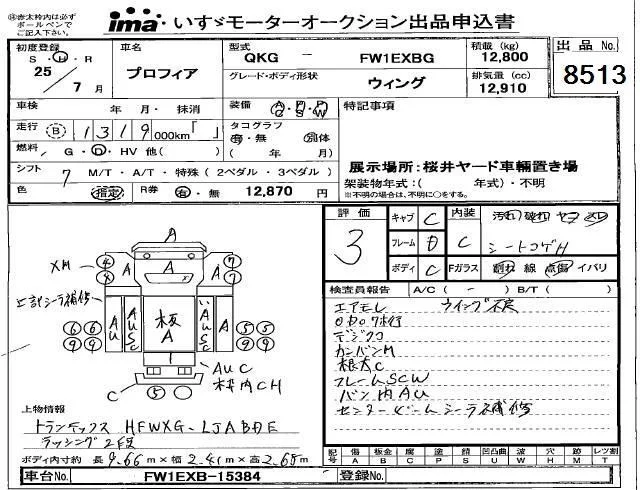 ㊟赤太枠内は必ず
ボールペンで
ご記入下さい。
ima いすゞモーターオークション出品申込書
初度登録
S・H・R
25
7 月
車名
プロフィア
型式
QKG － FW1EXBG
グレード・ボディ形状
ウィング
積載 (kg)
12,800
排気量 (cc)
12,910
出品 No.
8513
車検 年 月・ 抹消
装備 A・P・P
C S W
特記事項
走行 B 1 3 1 9 000km「 」
タコグラフ
有・無 別体
燃料 G・D・HV 他( )
( 年 月)
展示場所:桜井ヤード車輌置き場
シフト 7 M/T・A/T・特殊 (2ペダル・3ペダル)
架装物年式:( 年式)・不明
※不明の場合は、不明に○をする。
色 指定 R券 有・無 12,870 円
評価
3
キャブ C
フレーム D
ボディ C
内装
C
汚れ 破れ ヤコ メレ
シートコゲH
Fガラス 割れ 線 点傷 イバリ
検査員報告 A/C ( - ) B/T ( )
エアモレ ウイング不良
デジタコ
カンバンM
根太C
フレームSCW
バン内AU
センタービームシーラ補修
A
XM
4 4 A A 7 7
上記シーラ補修
6 6 AU AUSC 板 A AUSC A 5 5
9 9 9 9
1
AUC
床内CH
C
5
上物情報
トランテックス HFWXG-LJABDE
ラッシング2段
ボディ内寸約 長 9.66 m × 幅 2.41 m × 高 2.65 m
記号 傷 A 凹 B 腐 C 塗 P 錆 S 凹凸曲 U 波 W 穴 H 跡 M レツ割 T
車台No. FW1EXB-15384 登録No.